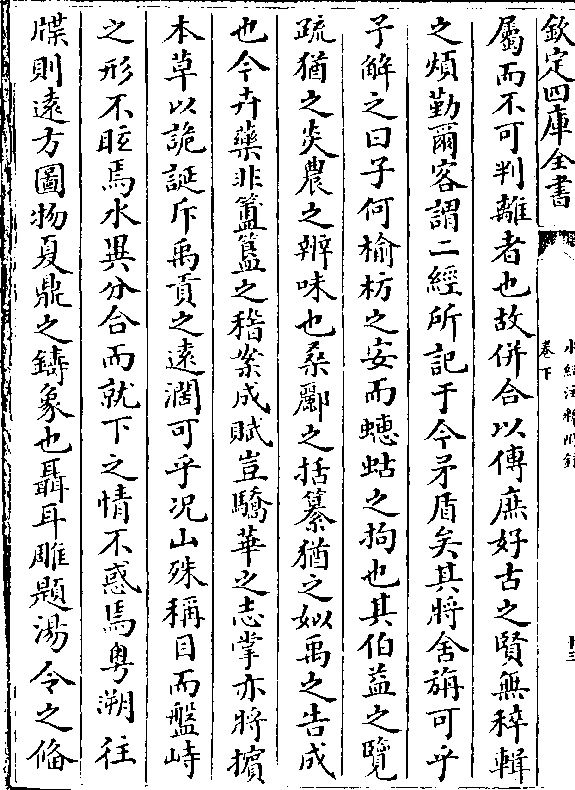 欽定四庫全書
水經注釋附錄
卷下
屬而不可判離者也故併合以傳庶好古之賢無稡輯
之煩勤爾客謂二經所記于今矛盾矣其將舍旃可乎
予解之曰子何榆枋之安而蟪蛄之拘也其伯益之覽
疏猶之炎農之辨味也桑酈之括纂猶之姒禹之告成
也今卉藥非簠簋之稽案成賦豈驕華之志掌亦將擯
本草以詭誕斥禹貢之遠濶可乎况山殊稱目而盤峙
之形不眩焉水異分合而就下之情不惑焉粤溯往
牒則遠方圖物夏鼎之鑄象也聶耳雕題湯令之偹